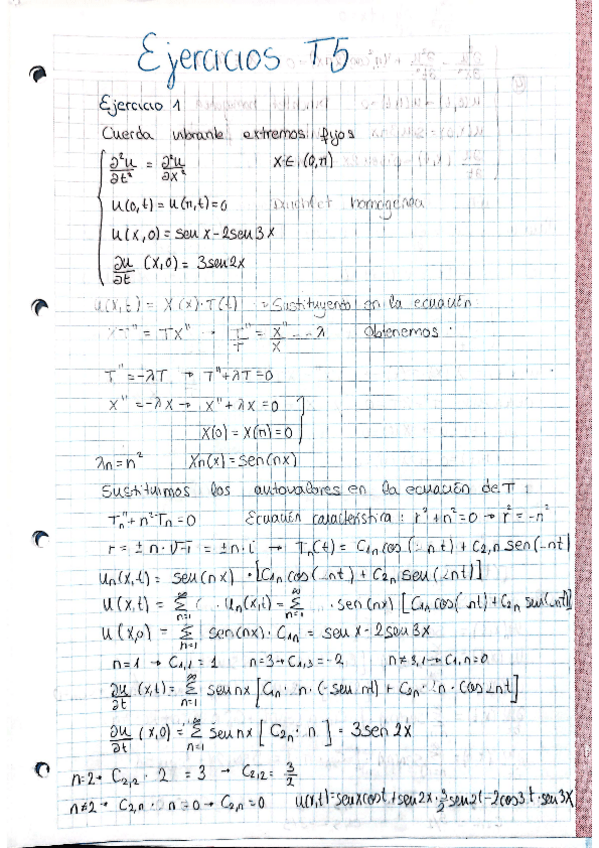 Ejercicios T5
Ejercicio 1
Cuerda vibrante extremos fijos
∂²u/∂t² = ∂²u/∂x² x ∈ (0,π)
u(0,t) = u(π,t) = 0 Dirichlet homogénea
u(x,0) = sen x - 2sen 3x
∂u/∂t (x,0) = 3sen2x
u(x,t) = X(x)·T(t) Sustituyendo en la ecuación
XT'' = TX'' → T''/T = X''/X = -λ obtenemos:
T'' = -λT → T'' + λT = 0
X'' = -λX → X'' + λX = 0
X(0) = X(π) = 0
λn = n² Xn(x) = sen(nx)
Sustituimos los autovalores en la ecuación de T:
Tn'' + n²·Tn = 0 Ecuación característica: r² + n² = 0 → r² = -n²
r = ± n·√-1 = ± n·i → Tn(t) = C1n cos(nt) + C2,n sen(nt)
un(x,t) = sen(nx)·[C1n cos(nt) + C2n sen(nt)]
u(x,t) = ∑n=1^∞ un(x,t) = ∑n=1^∞ sen(nx) [C1n cos(nt) + C2n sen(nt)]
u(x,0) = ∑n=1^∞ sen(nx)·C1n = sen x - 2sen 3x
n=1 → C1,1 = 1 n=3 → C1,3 = -2 n≠3,1 → C1,n = 0
∂u/∂t (x,t) = ∑n=1^∞ sen nx [C1n·n·(-sen nt) + C2n·n·cos nt]
∂u/∂t (x,0) = ∑n=1^∞ sen nx [C2n·n] = 3sen 2x
n=2 → C2,2·2 = 3 → C2,2 = 3/2
n≠2 → C2,n·n = 0 → C2,n = 0 u(x,t) = senx cost + sen2x·3/2 sen2t - 2cos3t·sen3x